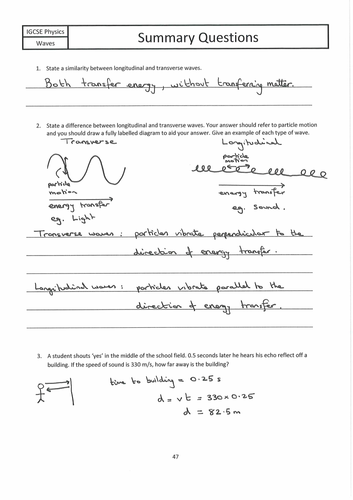 IGCSE Physics
Waves
Summary Questions
1. State a similarity between longitudinal and transverse waves.
Both transfer energy, without transferring matter.
2. State a difference between longitudinal and transverse waves. Your answer should refer to particle motion
and you should draw a fully labelled diagram to aid your answer. Give an example of each type of wave.
Transverse
Longitudinal
particle
motion
energy transfer
eg. Light
particle
motion
energy transfer
eg. Sound.
Transverse waves : particles vibrate perpendicular to the
direction of energy transfer.
Longitudinal waves : particles vibrate parallel to the
direction of energy transfer.
3. A student shouts 'yes' in the middle of the school field. 0.5 seconds later he hears his echo reflect off a
building. If the speed of sound is 330 m/s, how far away is the building?
time to building = 0.25 s
d = vt = 330 x 0.25
d = 82.5 m
47